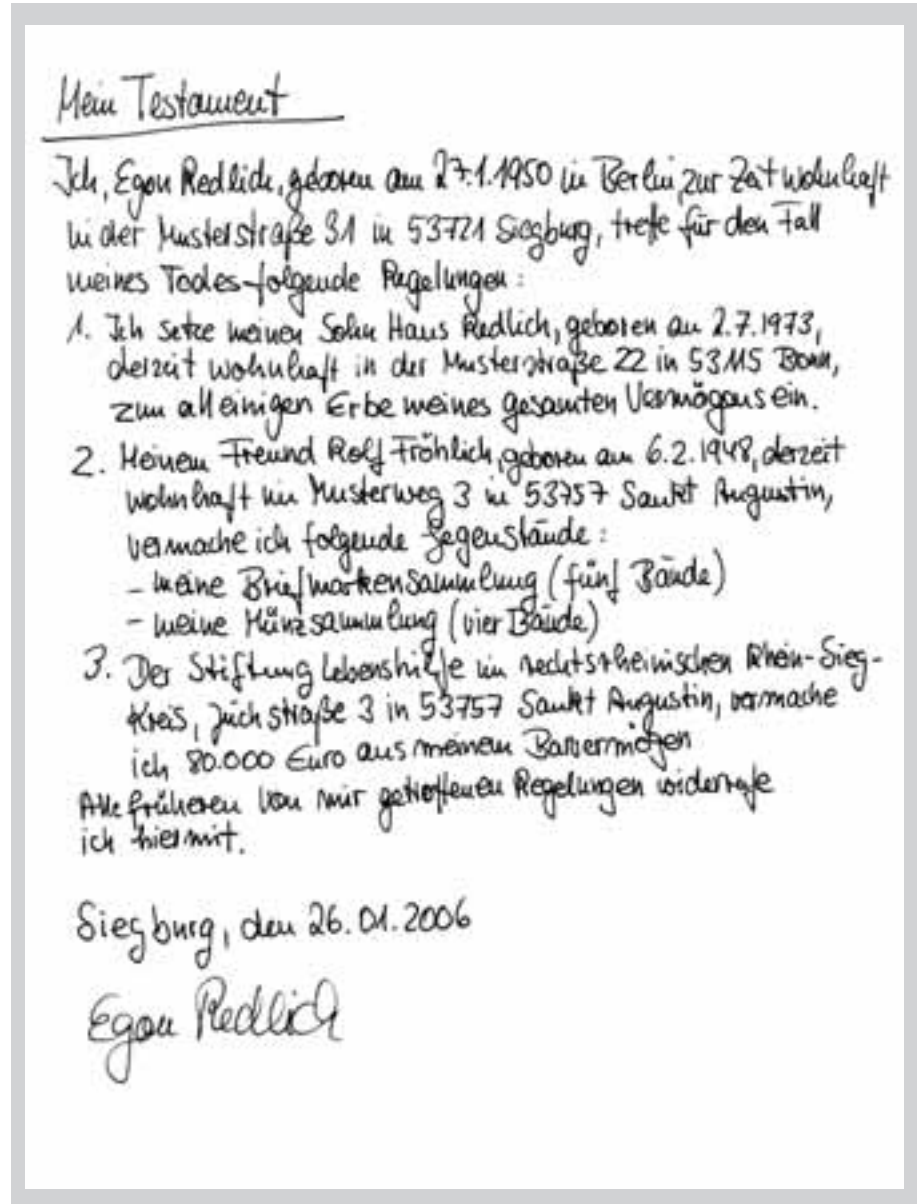 Mein Testament
Ich, Egon Redlich, geboren am 27.1.1950 in Berlin zur Zeit wohnhaft
in der Musterstraße 31 in 53721 Siegburg, treffe für den Fall
meines Todes folgende Regelungen:
1. Ich setze meinen Sohn Hans Redlich, geboren am 2.7.1973,
derzeit wohnhaft in der Musterstraße 22 in 53115 Bonn,
zum alleinigen Erbe meines gesamten Vermögens ein.
2. Meinem Freund Rolf Fröhlich, geboren am 6.2.1948, derzeit
wohnhaft im Musterweg 3 in 53757 Sankt Augustin,
vermache ich folgende Gegenstände:
- meine Briefmarkensammlung (fünf Bände)
- meine Münzsammlung (vier Bände)
3. Der Stiftung Lebenshilfe im rechtsrheinischen Rhein-Sieg-
Kreis, straße 3 in 53757 Sankt Augustin, vermache
ich 80.000 Euro aus meinem Barvermögen
Alle früheren von mir getroffenen Regelungen widerrufe
ich hiermit.
Siegburg, den 26.01.2006
Egon Redlich